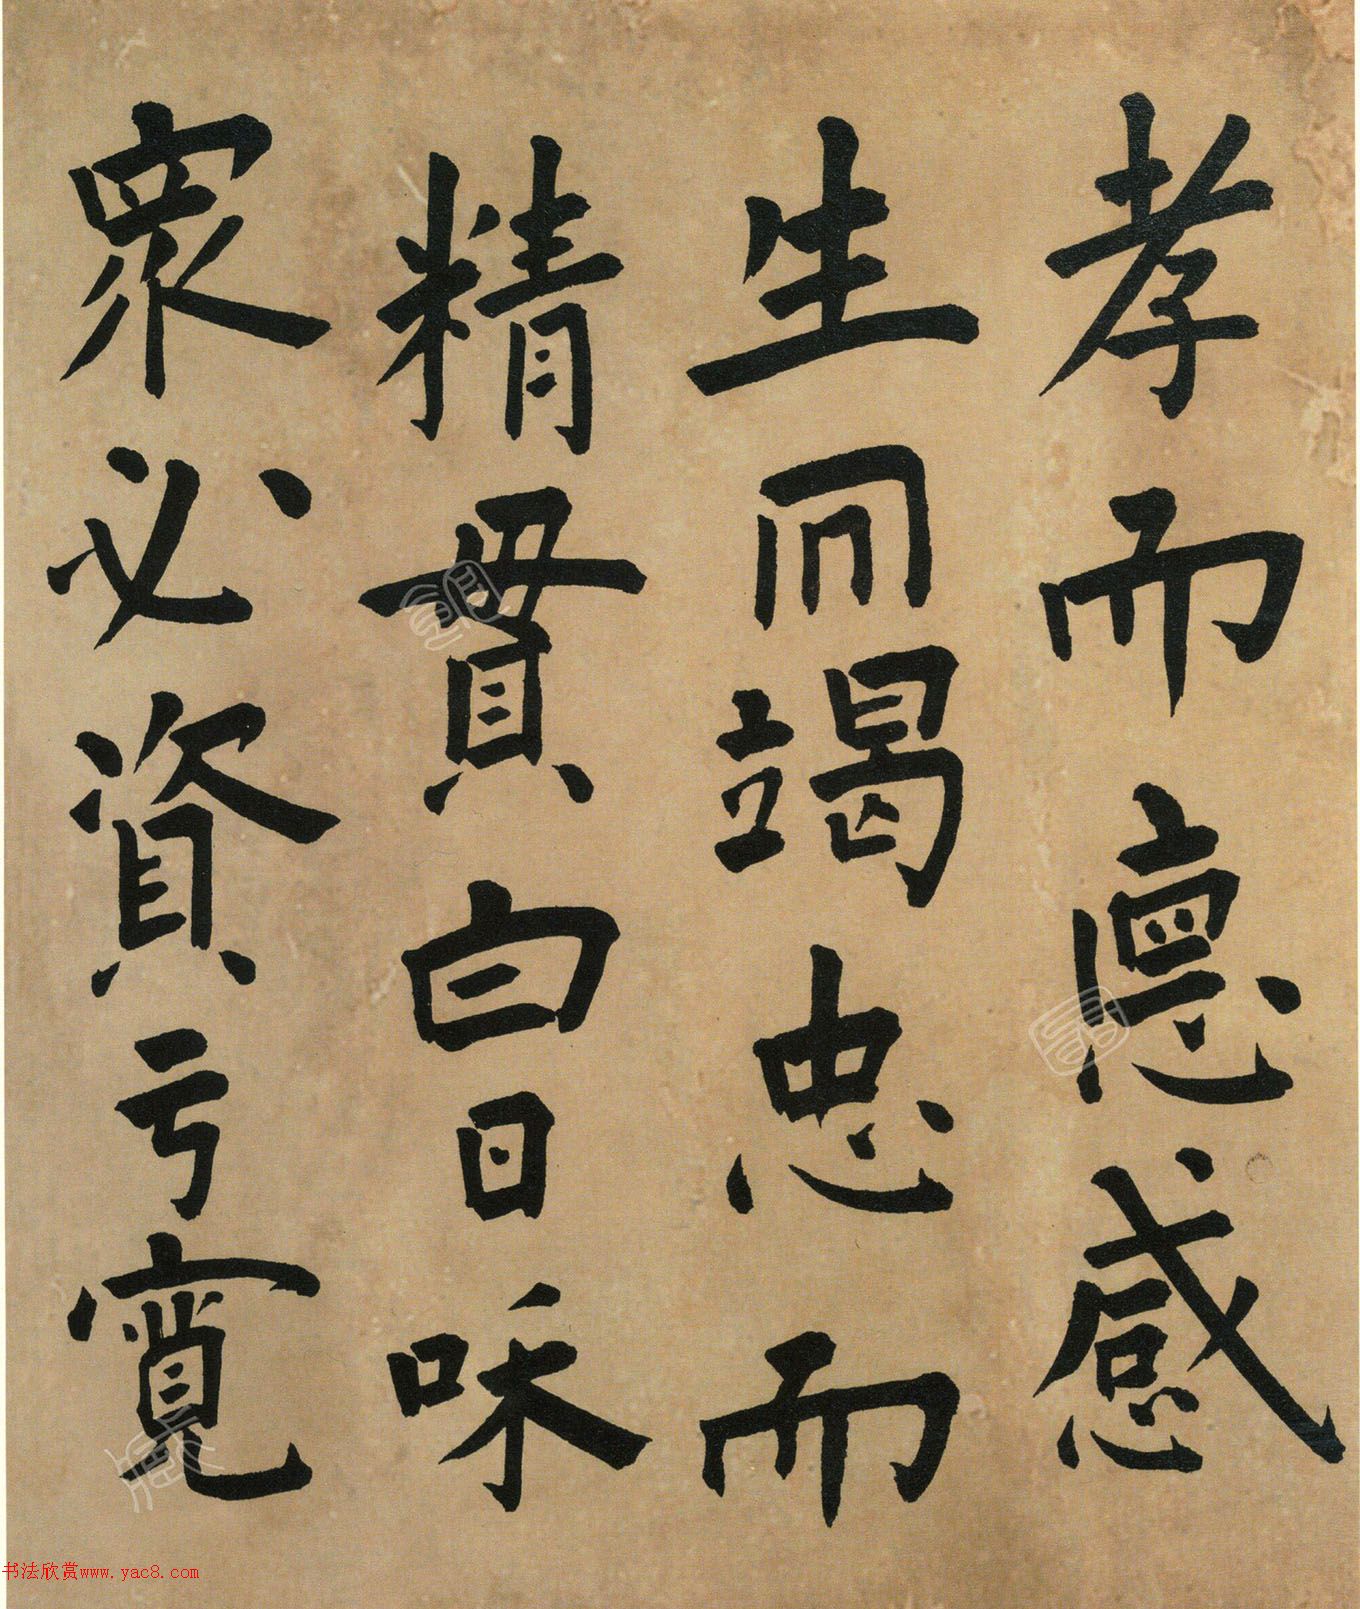 孝而德感
生竭忠而
精貫白日咊
眾必資亏寬
书法欣赏www.yac8.com